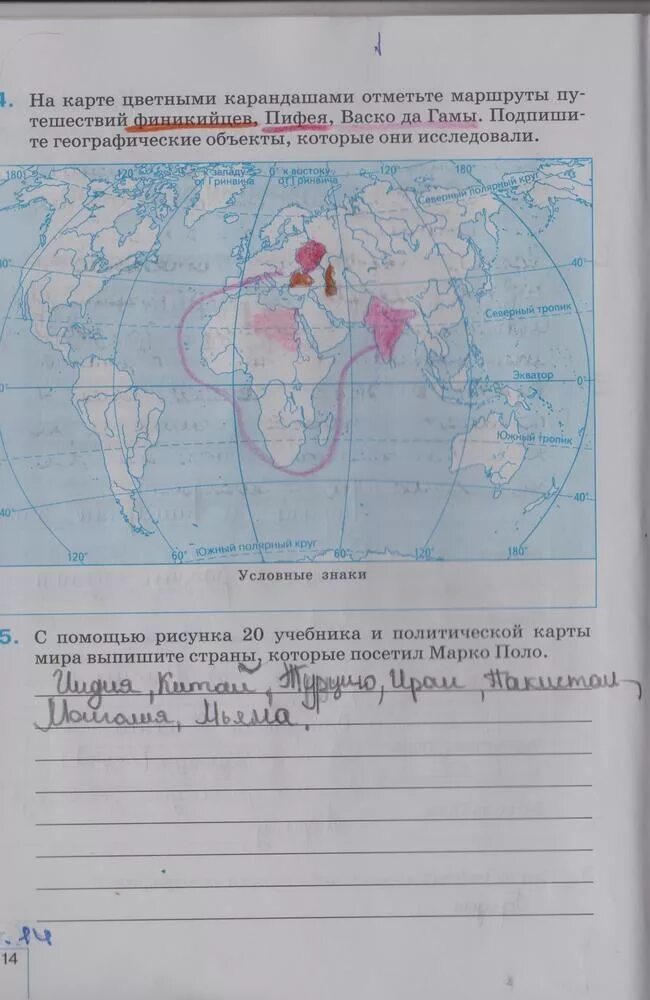 4. На карте цветными карандашами отметьте маршруты пу-
тешествий финикийцев, Пифея, Васко да Гамы. Подпиши-
те географические объекты, которые они исследовали.
180 120° к западу от Гринвича 0° к востоку от Гринвича 120° 180°
Северный полярный круг
40°
Северный тропик
0° Экватор 0°
Южный тропик
40° 40°
Южный полярный круг
120° 60° 60° 120° 180°
Условные знаки
5. С помощью рисунка 20 учебника и политической карты
мира выпишите страны, которые посетил Марко Поло.
Индия, Китай, Турцию, Иран, Пакистан,
Монголия, Мьяма.
14